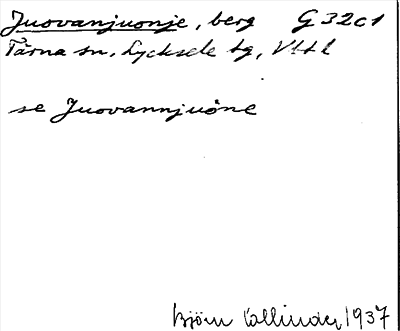 Juovanjuonje, berg G 32c1
Tärna sn, Lycksele lg, Vttl
se Juovannjuöne
Björn Collinder 1937